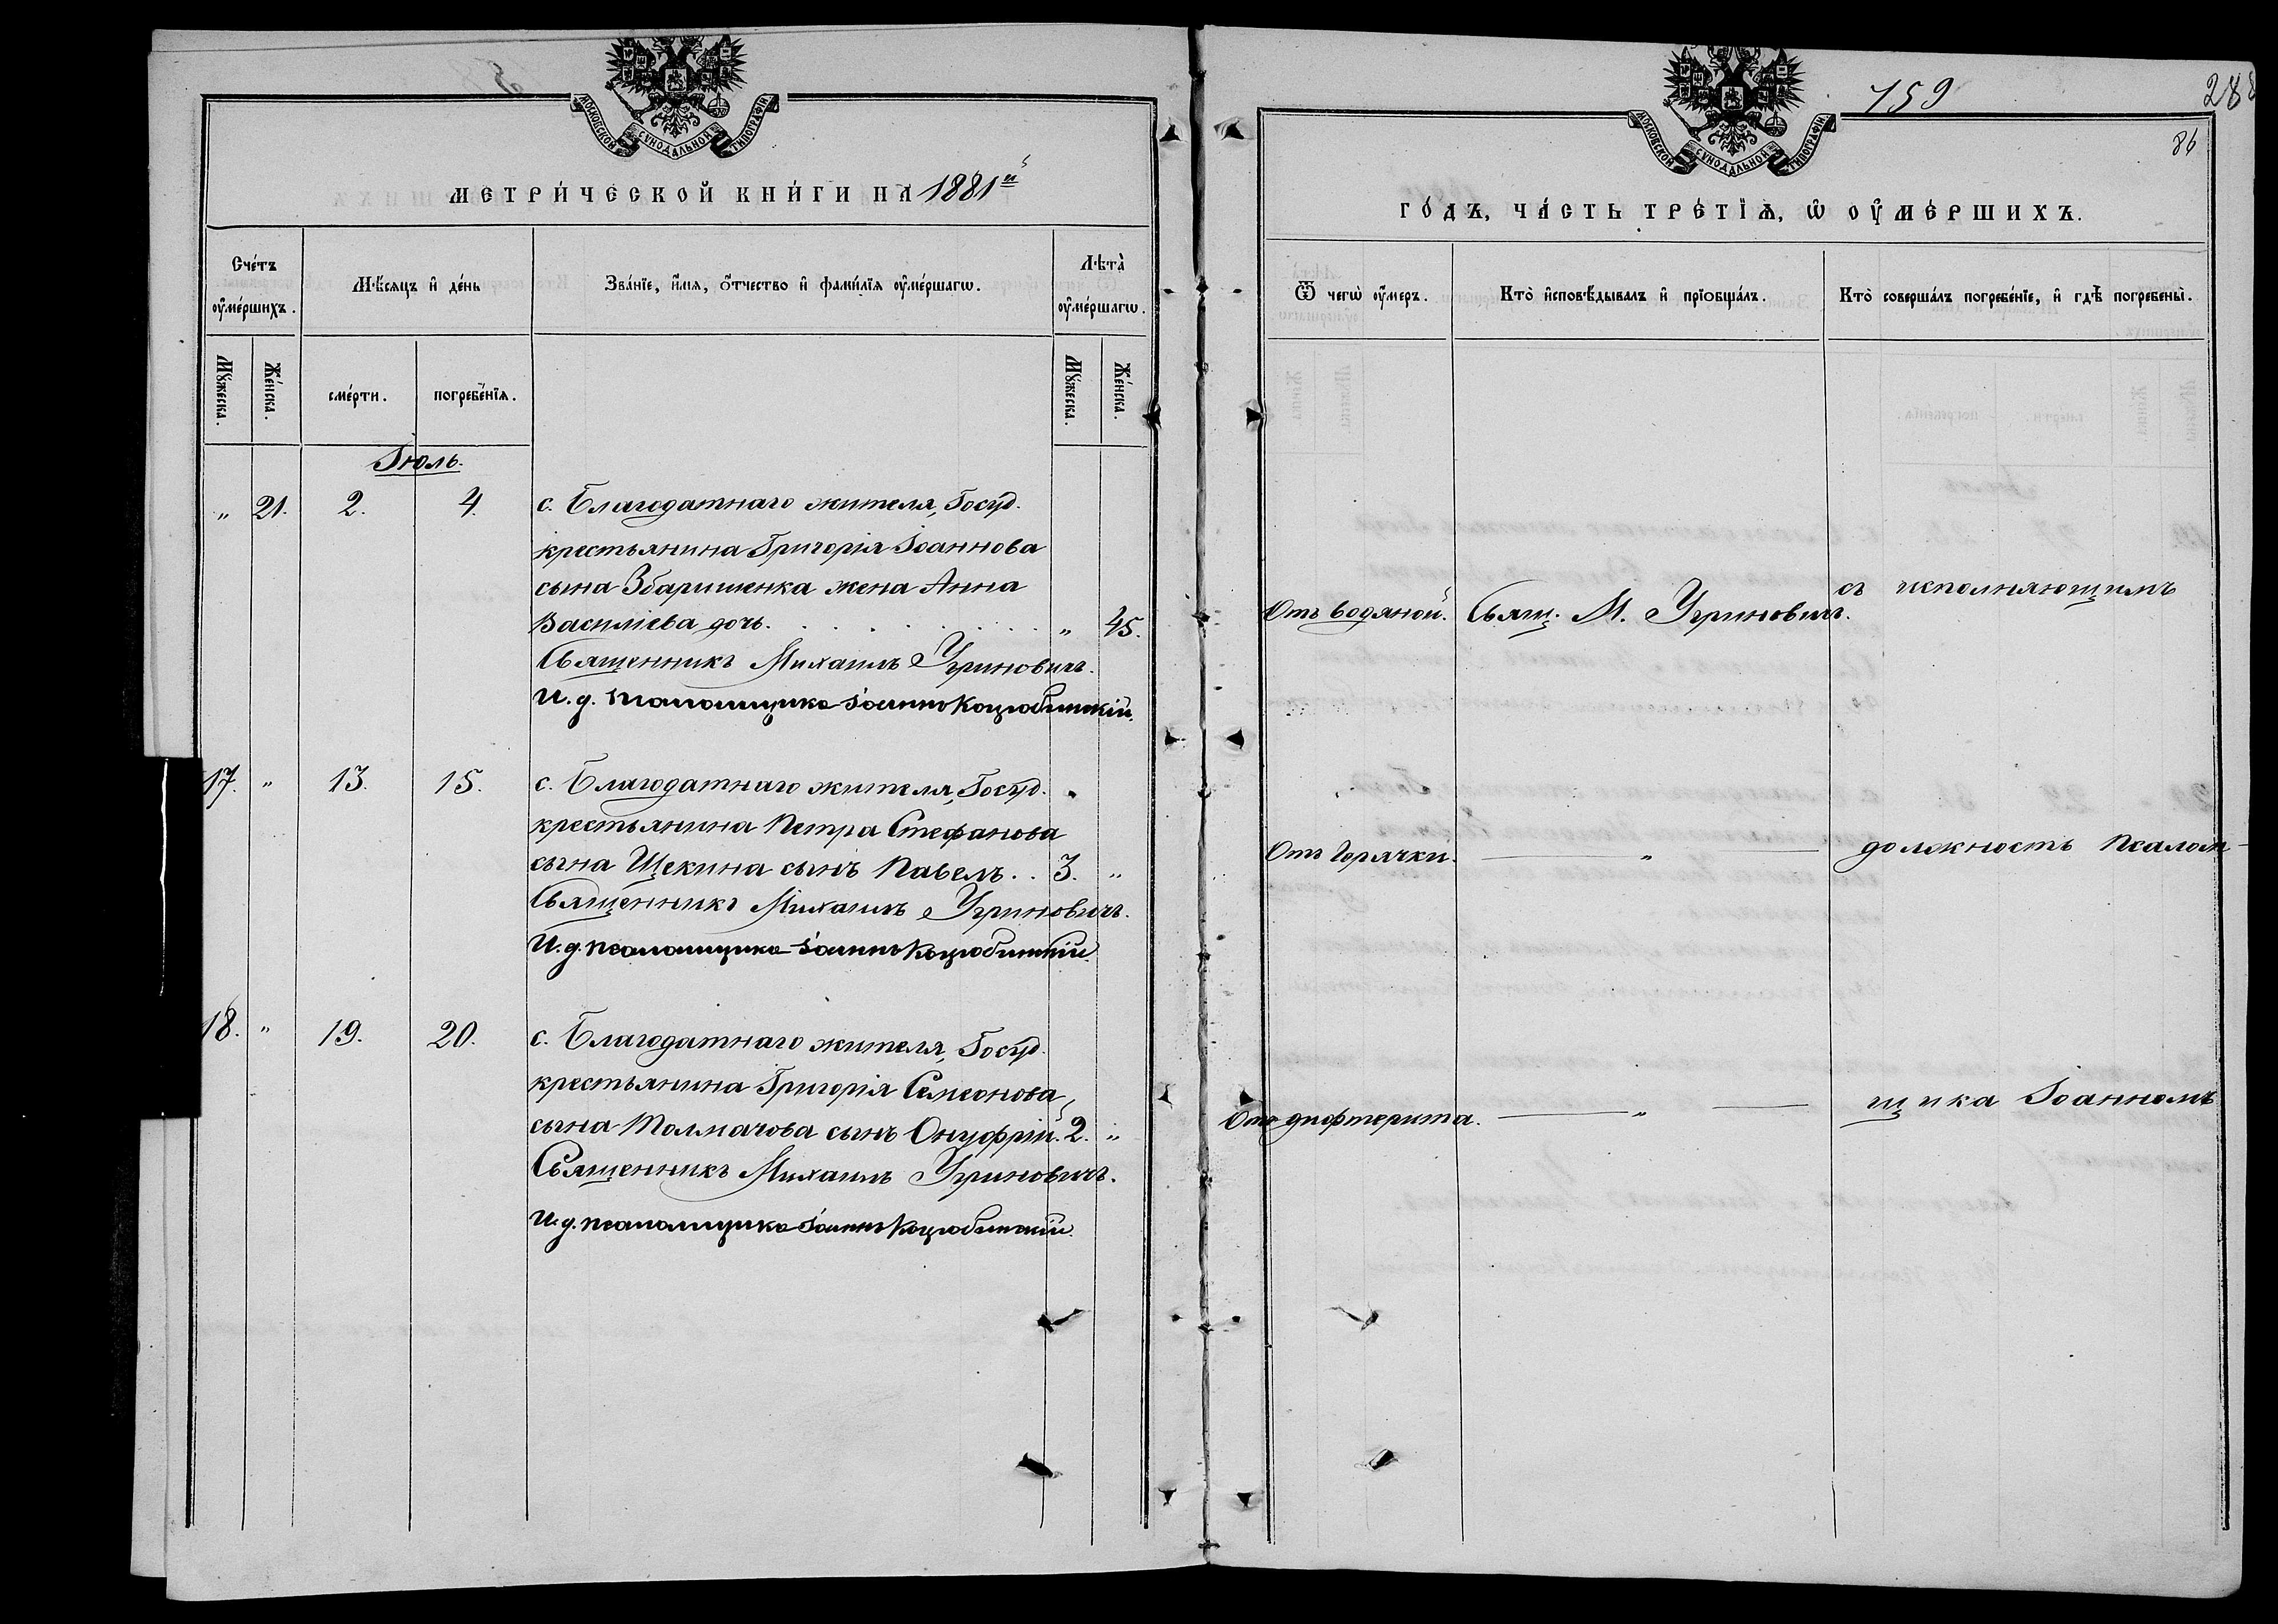 МОСКОВСКОЙ СѴНОДАЛЬНОЙ ТИПОГРАФІИ
МЕТРИ́ЧЕСКОЙ КНИ́ГИ НА 1881й
Сче́тъ ᲂу҆ме́ршихъ.
Мѣ́сяцъ и҆ де́нь
Зва́нїе, и҆́мя, ѻ҆́тчество и҆ фами́лїя ᲂу҆ме́ршагѡ.
Лѣта̀ ᲂу҆ме́ршагѡ.
Мꙋ́жеска.
Же́нска.
сме́рти.
погребе́нїя.
Мꙋ́жеска.
Же́нска.
Іюль.
„ 21. 2. 4. с. Благодатнаго жителя, Госуд.
крестьянина Григорія Іоаннова
сына Збаришенка жена Анна
Василіева дочь. . . . . . . . „ 45.
Священникъ Михаилъ Угриновичъ.
И. д. псаломщика Іоаннъ Коцюбинскій.
17. „ 13. 15. с. Благодатнаго жителя, Госуд.
крестьянина Петра Стефанова
сына Щекина сынъ Павелъ. . 3. „
Священникъ Михаилъ Угриновичъ.
И. д. псаломщика Іоаннъ Коцюбинскій.
18. „ 19. 20. с. Благодатнаго жителя, Госуд.
крестьянина Григорія Семеонова
сына Толмачова сынъ Онуфрій. 2. „
Священникъ Михаилъ Угриновичъ.
И. д. псаломщика Іоаннъ Коцюбинскій.
159
288
86
МОСКОВСКОЙ СѴНОДАЛЬНОЙ ТИПОГРАФІИ
ГО́ДЪ, ЧА́СТЬ ТРЕ́ТЇѦ, Ѡ҆ ОУ҆МЕ́РШИХЪ.
Ѿ чегѡ̀ ᲂу҆́меръ.
Кто̀ и҆сповѣ́дывалъ и҆ прїѻбща́лъ.
Кто̀ соверша́лъ погребе́нїе, и҆ гдѣ̀ погребены̀.
Отъ водяной. Свящ. М. Угриновичъ. съ исполняющимъ
Отъ горячки. „ должность Псалом-
Отъ дифтерита. „ щика Іоанномъ